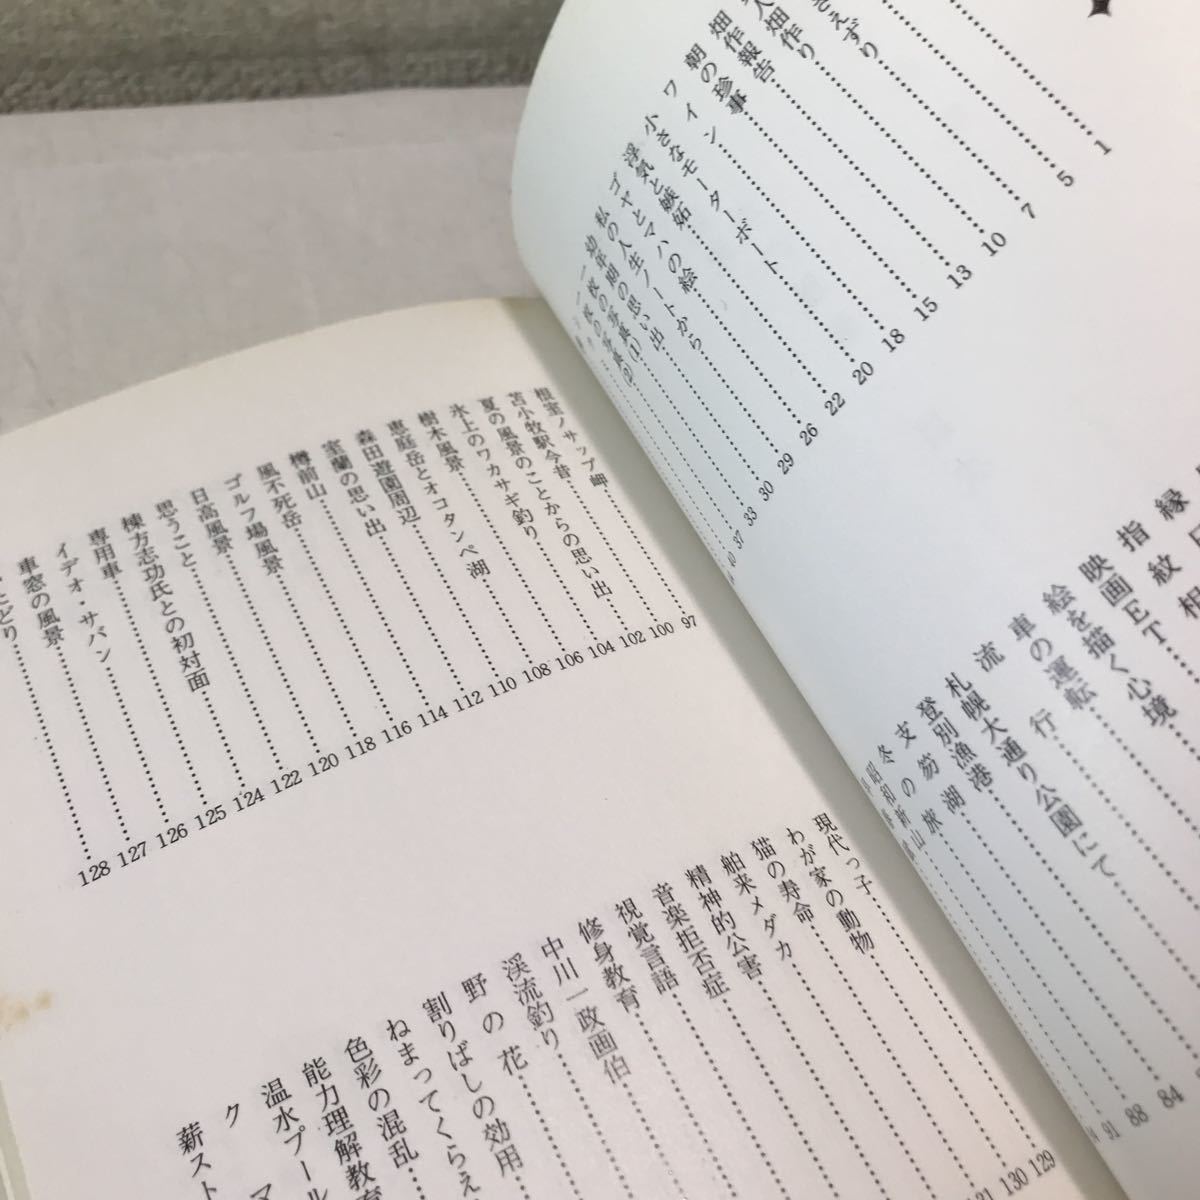 さえずり 1
畑作り 5
畑作報告 7
朝の珍事 10
ワイン 13
小さなモーターボート 15
浮気と嫉妬 18
ゴヤとマハの絵 20
私の人生ノートから 22
幼年期の思い出 26
一枚の写真(1) 29
一枚の写真(2) 30
33
37
指紋
映画ET
絵を描く心境
車の運転
流行
札幌大通り公園にて
登別漁港
支笏湖
冬の旅
昭和新山
84
88
91
根室ノサップ岬 97
苫小牧駅今昔 100
夏の風景のことからの思い出 102
氷上のワカサギ釣り 104
樹木風景 106
恵庭岳とオコタンペ湖 108
森田遊園周辺 110
室蘭の思い出 112
樽前山 114
風不死岳 116
ゴルフ場風景 118
日高風景 120
思うこと 122
棟方志功氏との初対面 124
専用車 125
イデオ・サバン 126
車窓の風景 127
128
現代っ子 129
わが家の動物 130
猫の寿命
舶来メダカ
精神的公害
音楽拒否症
視覚言語
修身教育
中川一政画伯
渓流釣り
野の花
割りばしの効用
ねまってくらえ
色彩の混乱
能力理解教育
温水プール
薪スト